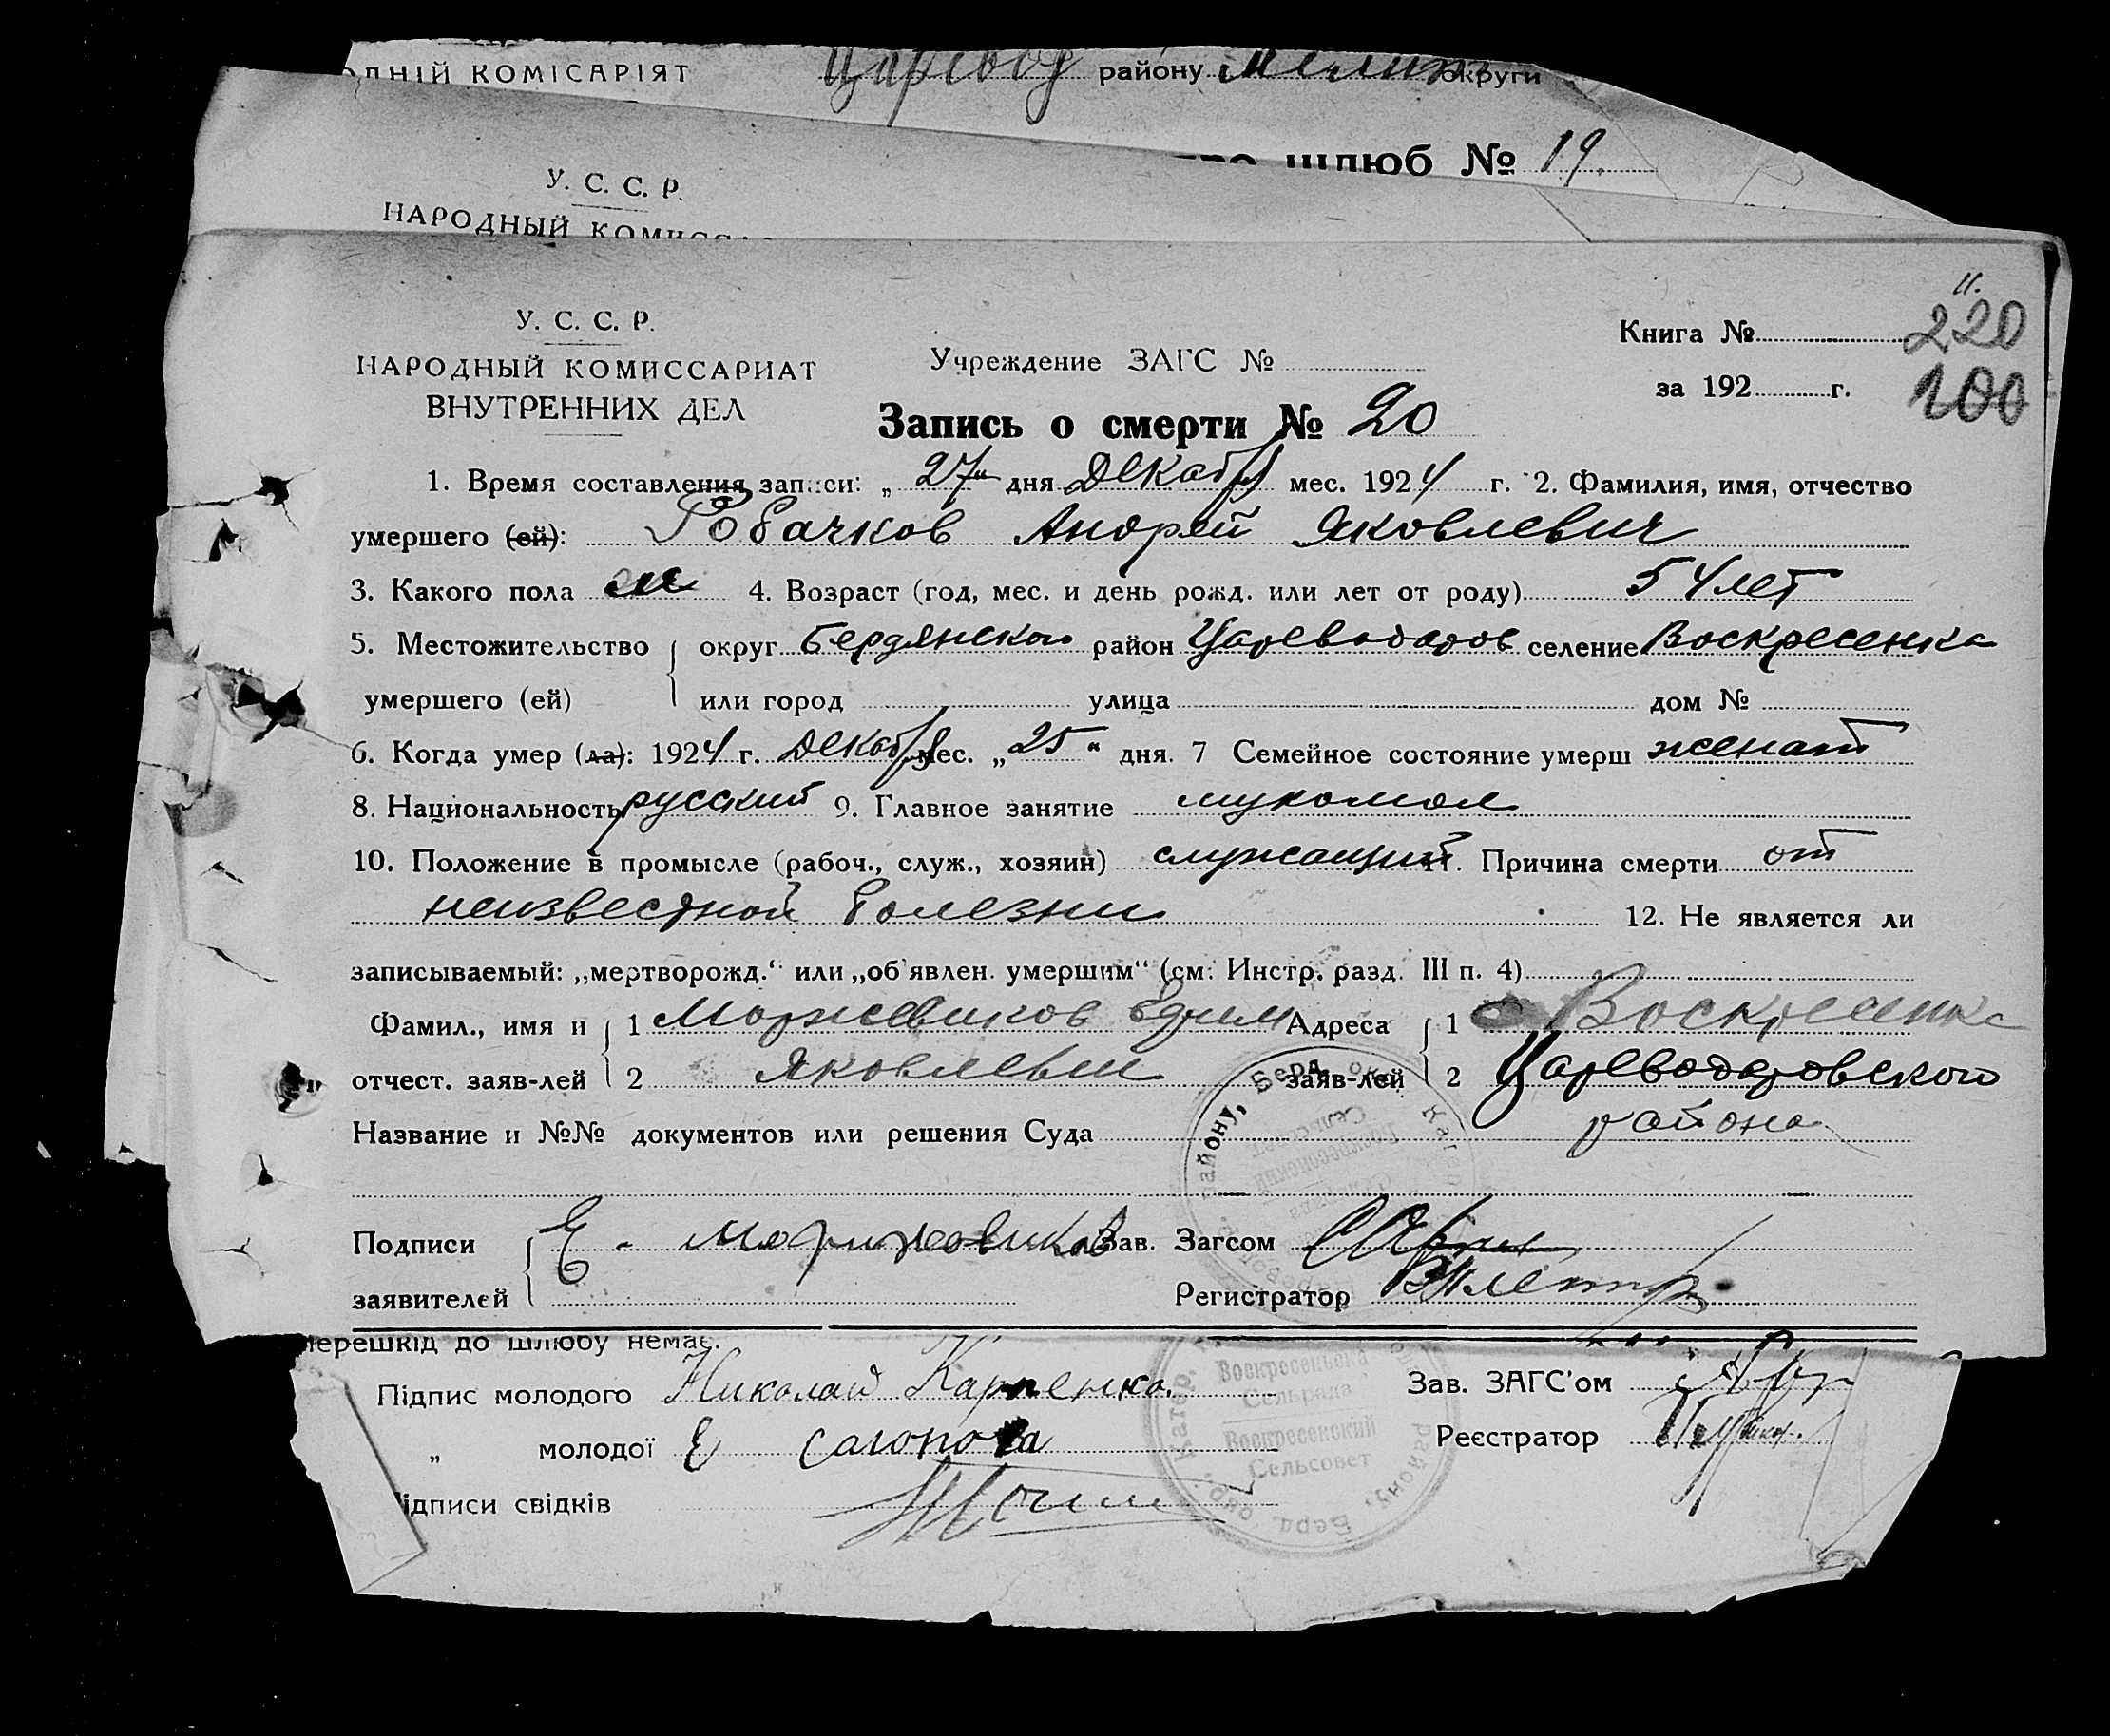 ОДНІЙ КОМІСАРІЯТ Царевод району Мелит округи
шлюб № 19.
У. С. С. Р.
НАРОДНЫЙ
У. С. С. Р.
НАРОДНЫЙ КОМИССАРИАТ
ВНУТРЕННИХ ДЕЛ
Учреждение ЗАГС №
Книга №
за 192 г.
11.
220
100
Запись о смерти № 20
1. Время составления записи: „ 27 " дня Декабря мес. 1924 г. 2. Фамилия, имя, отчество
умершего (ей): Робачков Андрей Яковлевич
3. Какого пола м 4. Возраст (год, мес. и день рожд. или лет от роду) 54 лет
5. Местожительство округ Бердянского район Цареводаров селение Воскресенка
умершего (ей) или город улица дом №
6. Когда умер (ла): 1924 г. Декабря мес. „ 25 " дня. 7 Семейное состояние умерш женат
8. Национальность русский 9. Главное занятие мукомол
10. Положение в промысле (рабоч., служ., хозяин) служащий 11. Причина смерти от
неизвестной болезни 12. Не является ли
записываемый: „мертворожд.“ или „об'явлен. умершим“ (см. Инстр. разд. III п. 4)
Фамил., имя и 1 Адреса 1 с Воскресенка
отчест. заяв-лей 2 Яковлевич заяв-лей 2 Цареводаровского
Название и №№ документов или решения Суда района
Подписи Е. Зав. Загсом
заявителей Регистратор
району, Берд. окр. Кат
Воскресенский
Сельсовет
Перешкід до шлюбу немає.
Підпис молодого Николай Карпенко. Зав. ЗАГС'ом
„ молодої Е Реєстратор
Підписи свідків
Воскресенська
Сельрада
Воскресенский
Сельсовет
Катер.
району, Берд. окр.